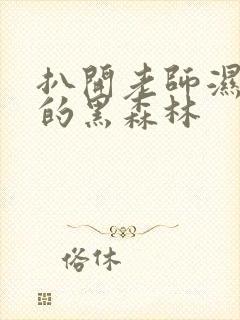 扒開老師濕
的黑森林
俗休